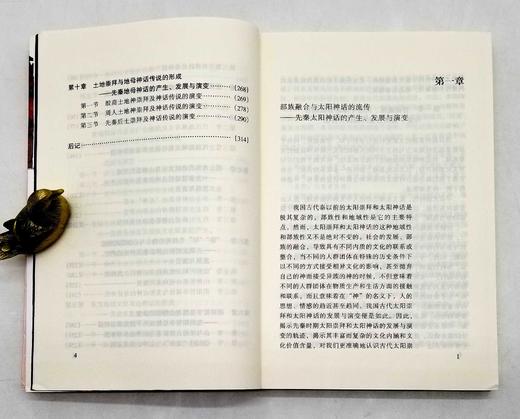 第十章　土地崇拜与地母神话传说的形成
——先秦地母神话的产生、发展与演变……(268)
第一节　殷商土地神崇拜及神话传说的演变……(269)
第二节　周人土地神崇拜及神话传说的演变……(278)
第三节　先秦后土崇拜及神话传说的演变……(290)
后记……[314]
4
第一章
部族融合与太阳神话的流传
——先秦太阳神话的产生、发展与演变
我国古代秦以前的太阳崇拜和太阳神话是
极其复杂的，部族性和地域性是它的主要特
点，然而，太阳崇拜和太阳神话的这种地域性
和部族性又不是绝对不变的。社会的发展、部
族的融合，导致具有不同内质的文化的联系或
整合，当不同的人群团体在特殊的历史条件下
以不同的方式接受相异文化的影响，甚至抛弃
自己的神而接受异族的神的时候，不但意味着
不同的人群团体在物质生产和生活方面的接触
和联系，而且意味着在“神”的名义下，人的
思想、情感的趋近甚至趋同，我国古代太阳崇
拜和太阳神话的发展与演变便是如此。因此，
揭示先秦时期太阳崇拜和太阳神话的发展与演变
的轨迹，揭示其丰富而复杂的文化内涵和文
化价值含量，对我们更准确地认识古代太阳崇
1